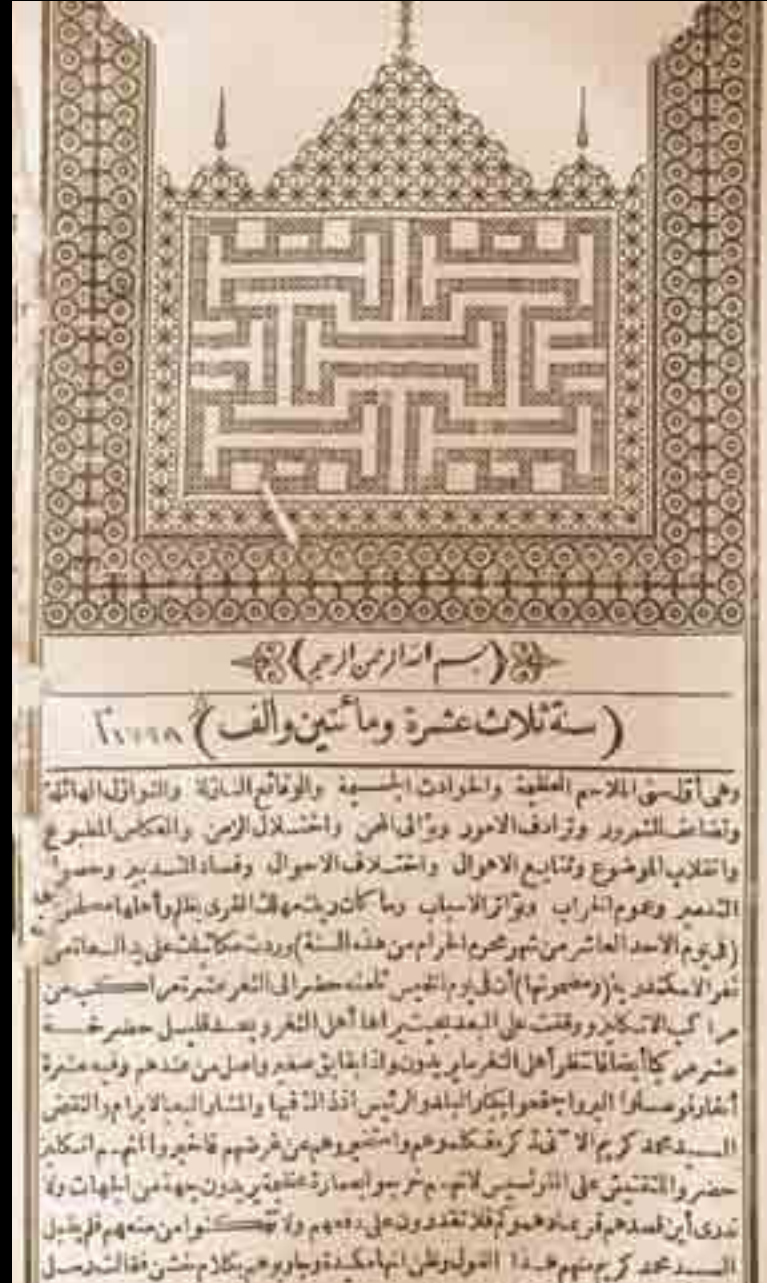 (بسم الله الرحمن الرحيم)
(سنة ثلاث عشرة ومائتين وألف) ١٧٩٨
وهى أول سنى الملاحم العظيمة والحوادث الجسيمة والوقائع النازلة والنوازل الهائلة
وتضاعف الشرور وترادف الامور وتوالى المحن واختلال الزمن وانعكاس المطبوع
وانقلاب الموضوع وتتابع الاهوال واختلاف الاحوال وفساد التدبير وحصول
التدمير وعموم الخراب وتواتر الاسباب وما كان ربك مهلك القرى بظلم وأهلها مصلحون
(فى يوم الاحد العاشر من شهر محرم الحرام من هذه السنة) وردت مكاتبات على يد السعاة من
ثغر الاسكندرية (ومضمونها) أن فى يوم الخميس ثامنه حضر الى الثغر عشرة مراكب من
مراكب الانكليز ووقفت على البعد بحيث يراها أهل الثغر وبعد قليل حضر خمسة
عشر مركبا أيضا فانتظر أهل الثغر ما يريدون واذا بقارب صغير واصل من عندهم وفيه عشرة
أنفار فوصلوا البر واجتمعوا بكبار البلد والرئيس اذ ذاك فيها والمشار اليه بالابرام والنقض
السيد محمد كريم الآتى ذكره فكلموهم واستخبروهم عن غرضهم فأخبروا انهم انكليز
حضروا للتفتيش على الفرنسيس لانهم خرجوا بعمارة عظيمة يريدون جهة من الجهات ولا
ندرى أين قصدهم فربما دهموكم فلا تقدرون على دفعهم ولا تتمكنوا من منعهم فلم يقبل
السيد محمد كريم منهم هذا القول وظن انها مكيدة وجاوبوهم بكلام خشن فقالت رسل